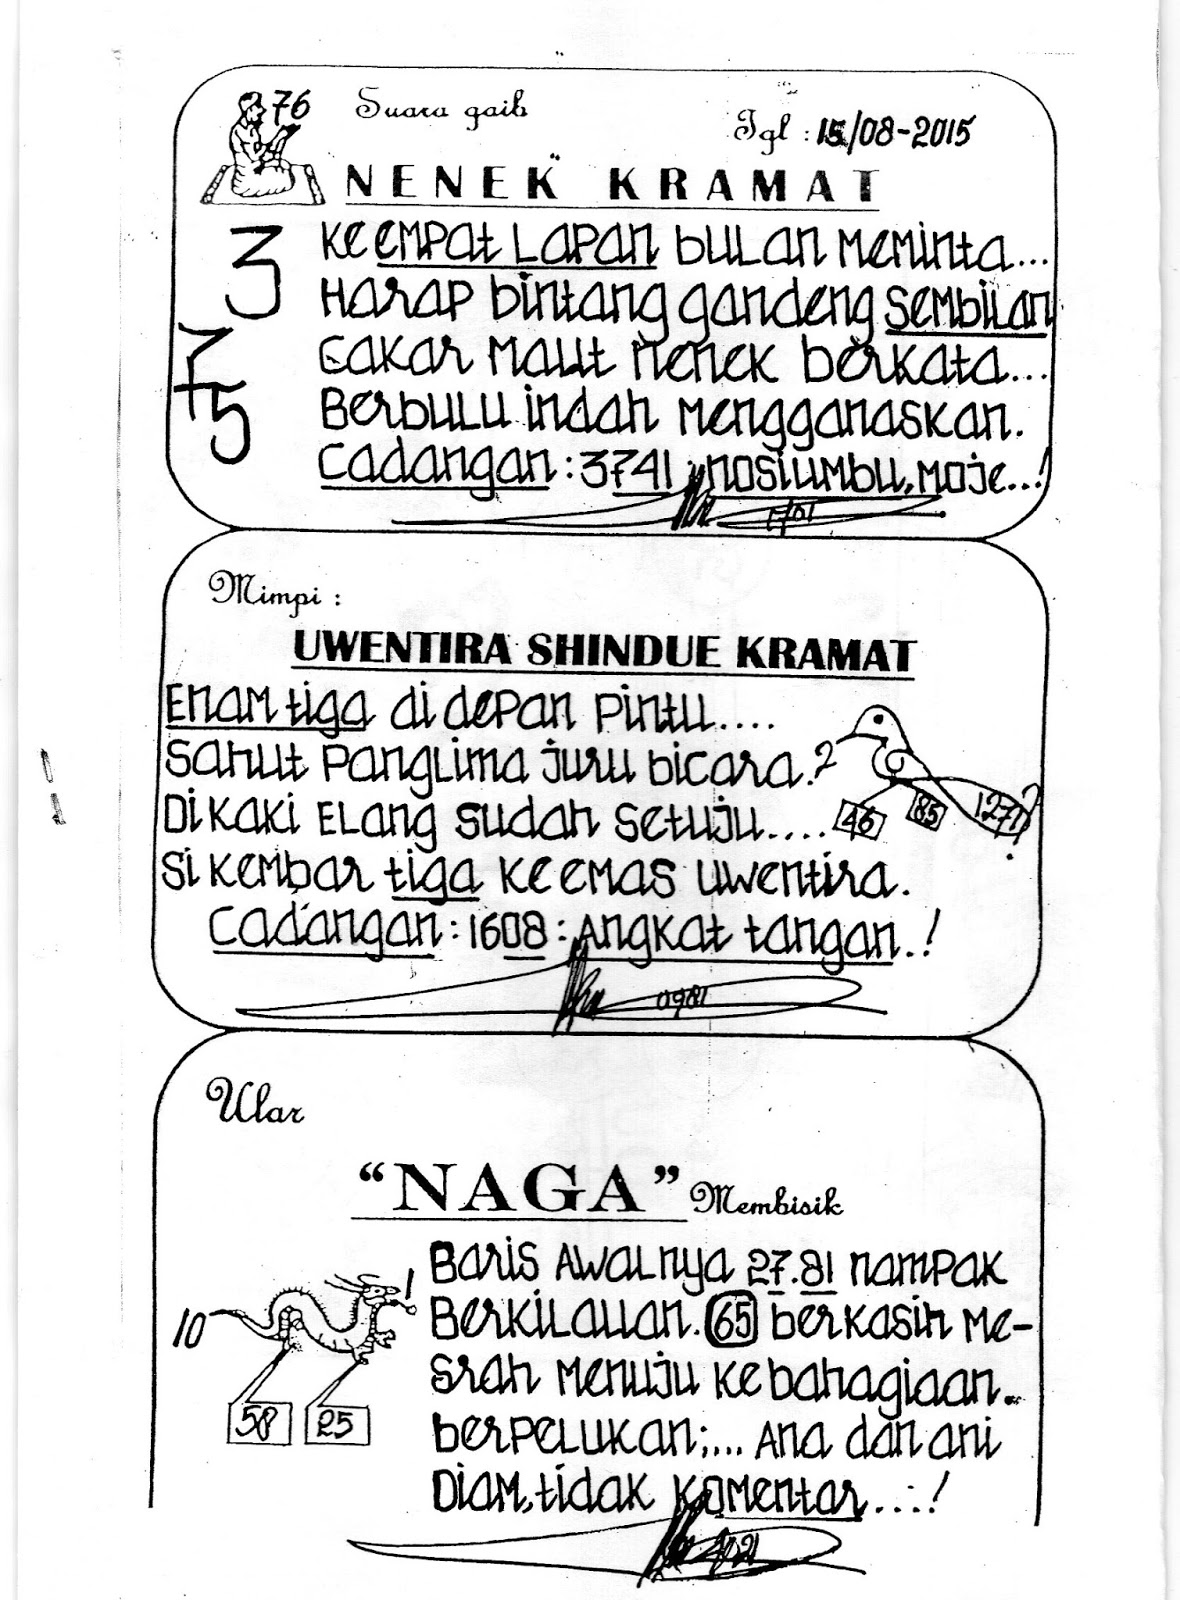 76 Suara gaib
Tgl : 15/08-2015
NENEK KRAMAT
3
7
5
Keempat Lapan bulan meminta...
Harap bintang gandeng sembilan
Cakar maut nenek berkata...
Berbulu indah mengganaskan.
Cadangan : 3741 : nosiumbu, moje..!
Mimpi :
UWENTIRA SHINDUE KRAMAT
Enam tiga di depan pintu....
Sahut Panglima juru bicara.?
Di kaki Elang sudah setuju....
46 85 1271?
Si kembar tiga ke emas uwentira.
Cadangan : 1608 : Angkat tangan..!
0981
Ular
"NAGA" Membisik
Baris Awalnya 27.81 nampak
Berkilauan. 65 berkasih me-
srah menuju kebahagiaan..
berpelukan;... Ana dan ani
Diam, tidak komentar...!
10
58 25